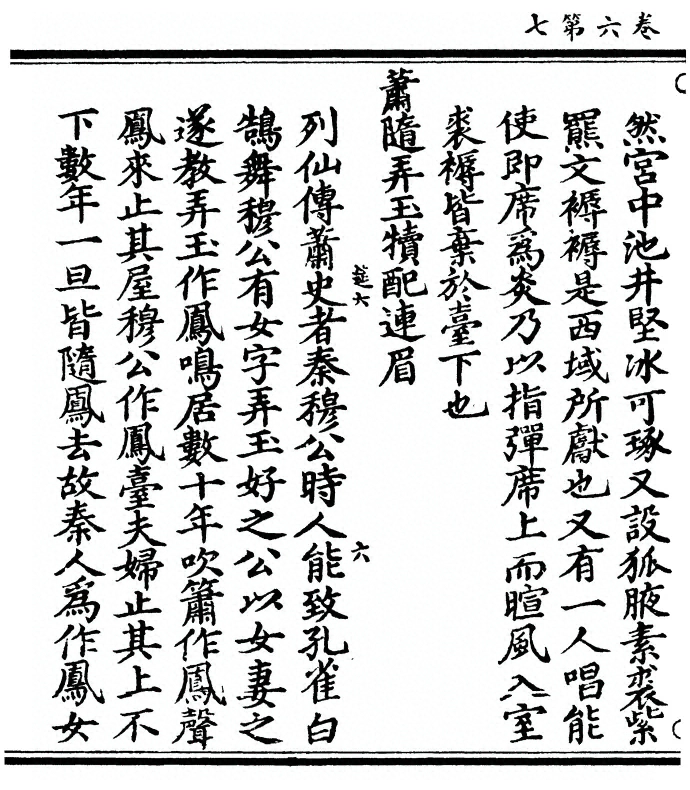 卷六第七
然宮中池井堅冰可琢又設狐腋素裘紫
羆文褥褥是西域所獻也又有一人唱能
使即席為炎乃以指彈席上而暄風入室
裘褥皆棄於臺下也
蕭隨弄玉犢配連眉
列仙傳蕭史者秦穆公時人能致孔雀白
鵠舞穆公有女字弄玉好之公以女妻之
遂教弄玉作鳳鳴居數十年吹簫作鳳聲
鳳來止其屋穆公作鳳臺夫婦止其上不
下數年一旦皆隨鳳去故秦人為作鳳女
六